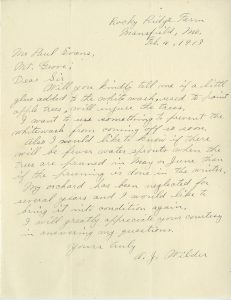 Rocky Ridge Farm
Mansfield, Mo.
Feb. 4, 1919
Mr Paul Evans,
Mt. Grove;
Dear Sir
Will you kindly tell me if a little
glue added to the white wash, used to paint
apple trees, will injure the trees.
I want to use something to prevent the
whitewash from coming off so soon.
Also I would like to know if there
will be fewer water sprouts when the
trees are pruned in May or June than
if the pruning is done in the winter.
My orchard has been neglected for
several years and I would like to
bring it into condition again.
I will greatly appreciate your courtesy
in answering my questions.
Yours truly
A. J. Wilder